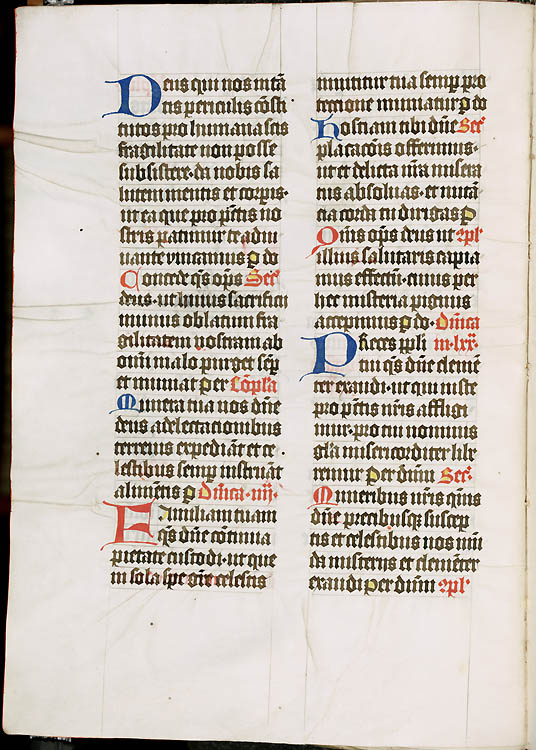 Deus qui nos in tā
tis periculis cōsti
tutos pro humana scis
fragilitate non posse
subsistere · da nobis sa
lutem mentis et corpis ·
ut ea que pro pctīs no
stris patimur te adiu
uante vincamus p do
Concede qs ops Secr̄
deus · ut huius sacrificij
munus oblatum fra
gilitatem nostram ab
omi malo purget semp
et muniat per Cōpła
Munera tua nos dñe
deus a delectacionibus
terrenis expediāt et ce
lestibus semp instruāt
alimētis p Dñica · iiij ·
Familiam tuam
qs dñe cōtinua
pietate custodi · ut que
in sola spe grē celestis
innititur tua semp pro
teccione muniatur p do
Hostiam tibi dñe Secr̄
placacōis offerimus ·
ut et delicta nrā misera
tus absoluas · et nutā
cia corda tu dirigas p
Oms ops deus ut 9pł
illius salutaris capia
mus effectū · cuius per
hec misteria pignus
accepimus p do · Dñica
Preces ppłi in · lxx ·
tui qs dñe clemē
ter exaudi · ut qui iuste
pro pctīs nrīs affligi
mur · pro tui nominis
głia misericorditer libe
remur per dūm Secr̄
Muneribus nrīs qs
dñe precibusq suscep
tis et celestibus nos mū
da misteriis et clemēter
exaudi per dūm 9pł